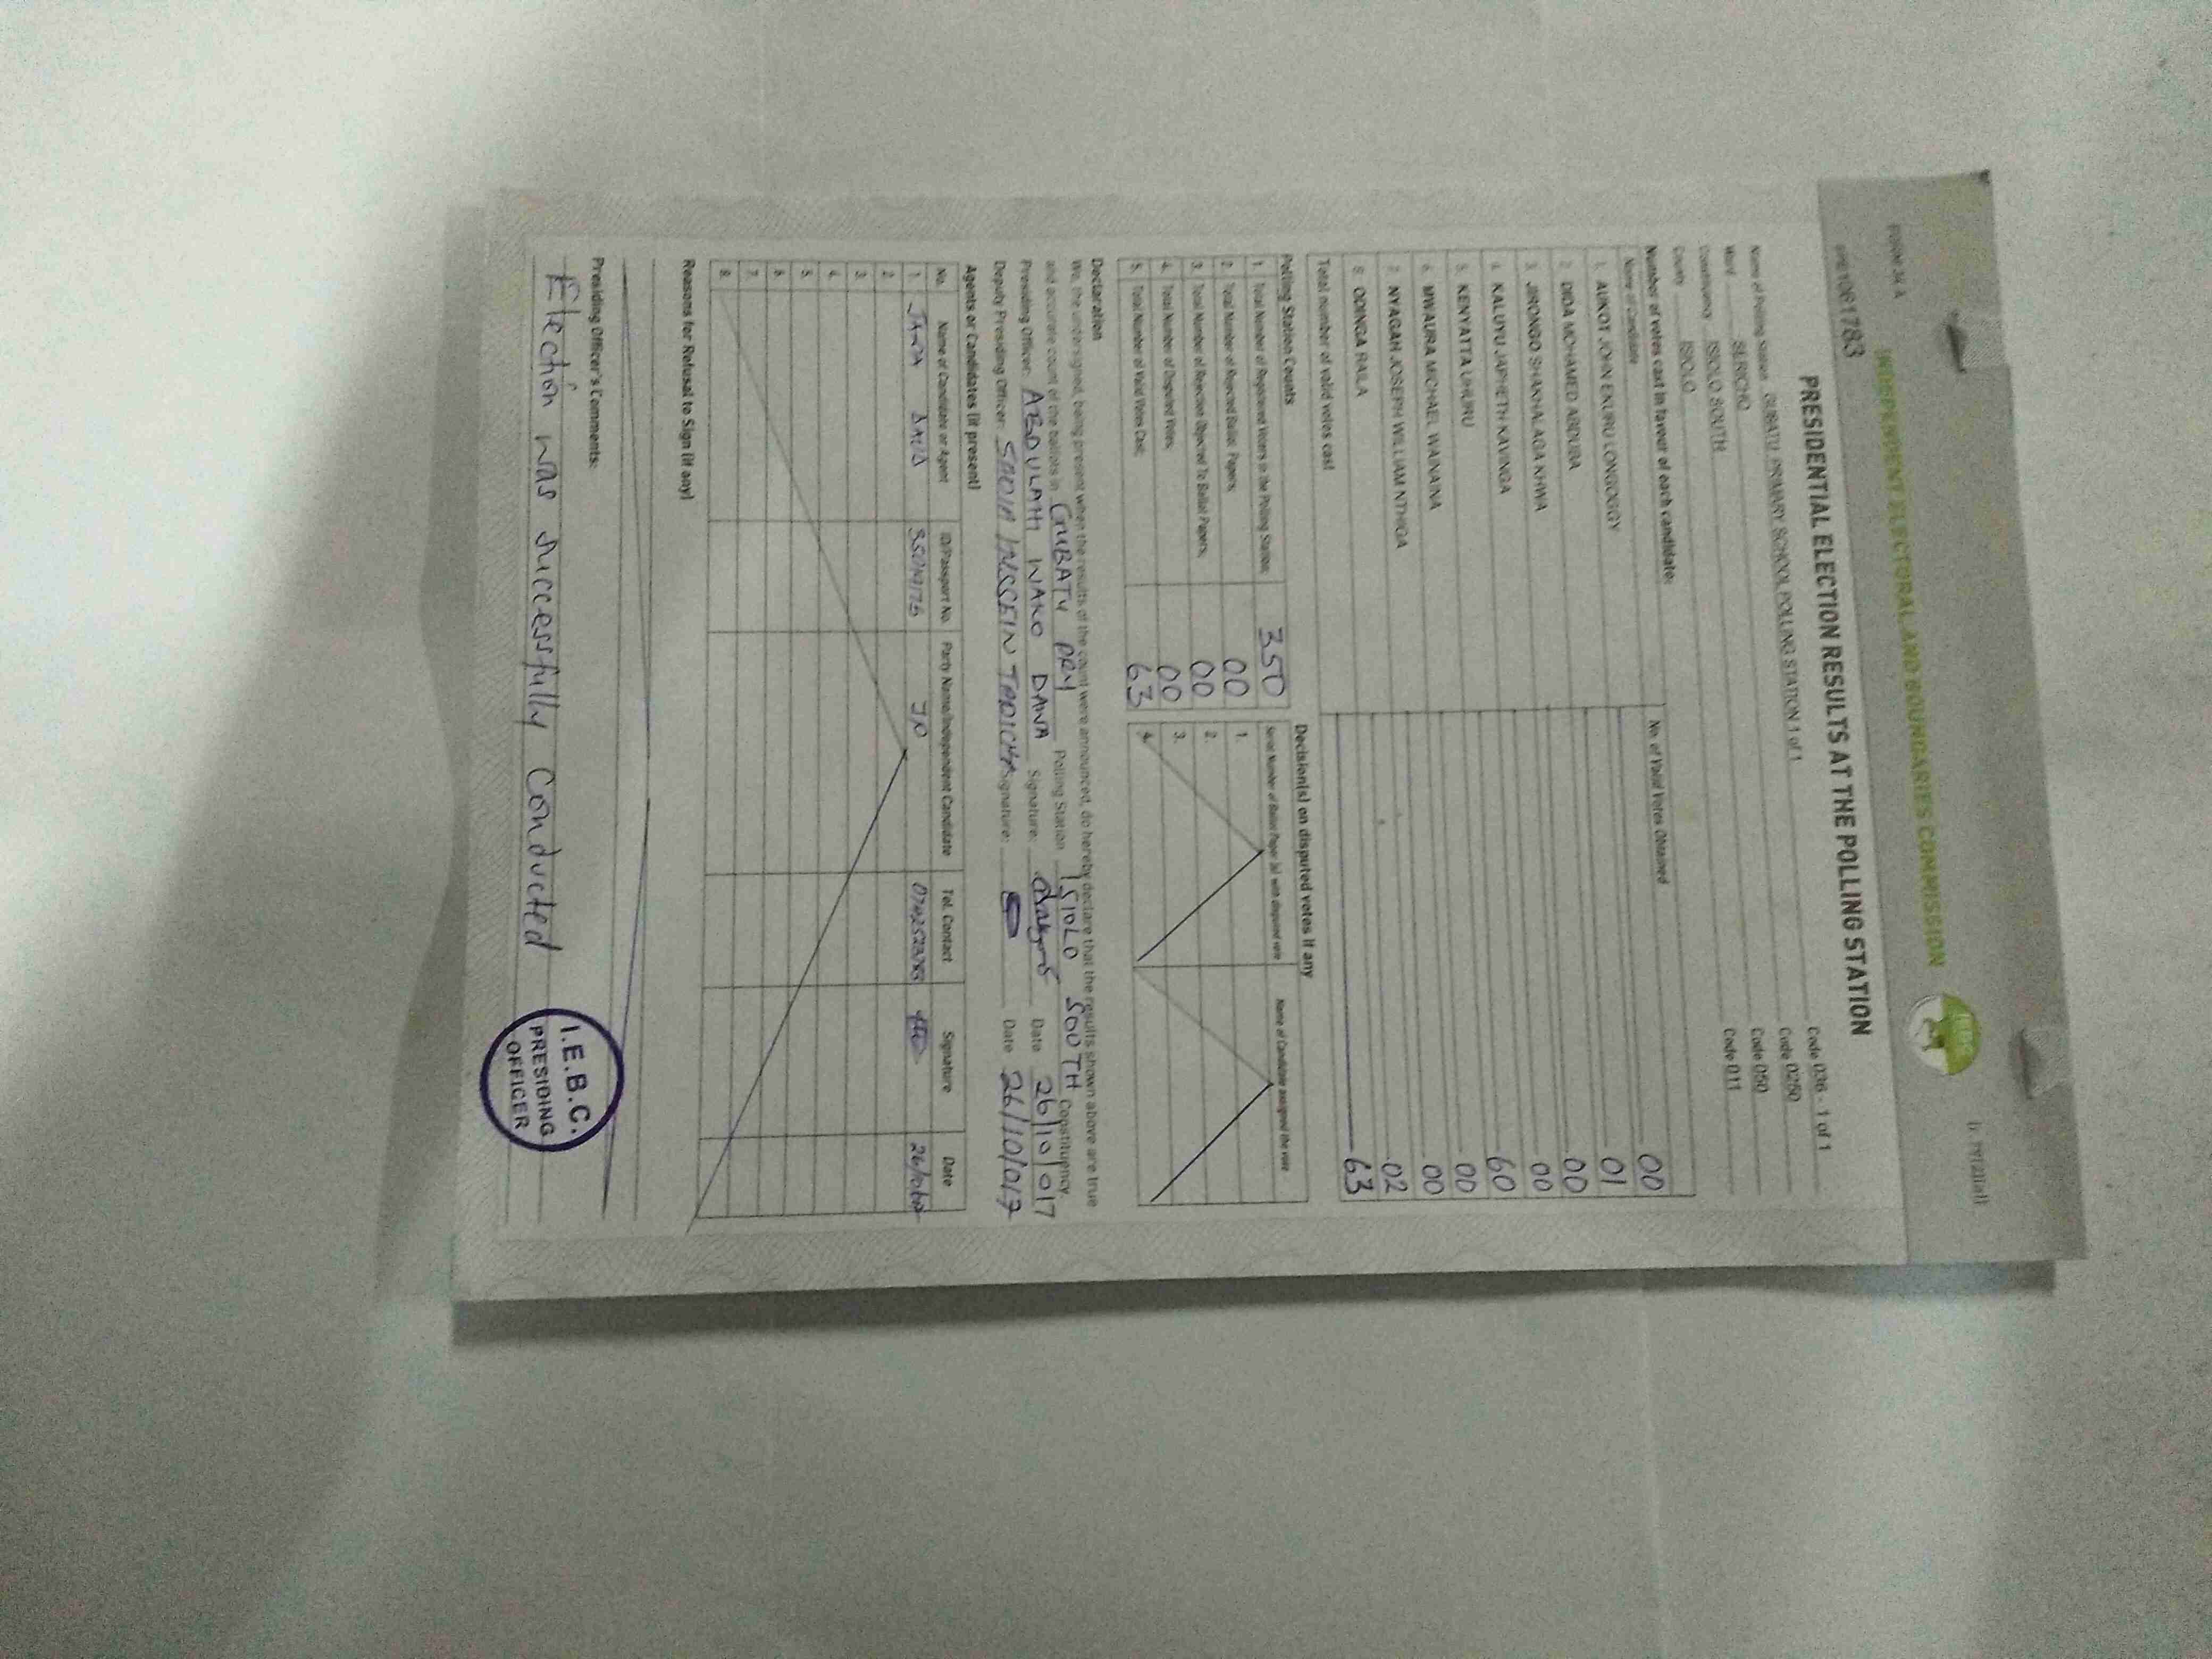 FORM 34 A
INDEPENDENT ELECTORAL AND BOUNDARIES COMMISSION
1061783
PRESIDENTIAL ELECTION RESULTS AT THE POLLING STATION
Name of Polling Station GUBATU PRIMARY SCHOOL POLLING STATION 1 of 1 Code 036 - 1 of 1
Ward SERICHO Code 0250
Constituency ISIOLO SOUTH Code 050
County ISIOLO Code 011
Number of votes cast in favour of each candidate:
Name of Candidate No. of Valid Votes Obtained
1. AUKOT JOHN EKURU LONGOGGY 00
2. DIDA MOHAMED ABDUBA 01
3. JIRONGO SHAKHALAGA KHWA 00
4. KALUYU JAPHETH KAVINGA 00
5. KENYATTA UHURU 60
6. MWAURA MICHAEL WAINAINA 00
7. NYAGAH JOSEPH WILLIAM NTHIGA 00
8. ODINGA RAILA 02
Total number of valid votes cast 63
Polling Station Counts
1. Total Number of Registered Voters in the Polling Station; 350
2. Total Number of Rejected Ballot Papers; 00
3. Total Number of Rejection Objected To Ballot Papers; 00
4. Total Number of Disputed Votes; 00
5. Total Number of Valid Votes Cast; 63
Decision(s) on disputed votes if any
Serial Number of Ballot Paper (s) with disputed vote Name of Candidate assigned the vote
1.
2.
3.
4.
Declaration
We, the undersigned, being present when the results of the count were announced, do hereby declare that the results shown above are true
and accurate count of the ballots in GUBATU PRY Polling Station ISIOLO SOUTH Constituency.
Presiding Officer: ABDULAHI WAKO DANA Signature: Date 26/10/017
Deputy Presiding Officer: Signature: Date 26/10/017
Agents or Candidates (if present)
No. Name of Candidate or Agent ID/Passport No. Party Name/Independent Candidate Tel. Contact Signature Date
1.
2.
3.
4.
5.
6.
7.
8.
Reasons for Refusal to Sign (if any)
Presiding Officer's Comments:
Election was successfully Conducted
I.E.B.C.
PRESIDING
OFFICER